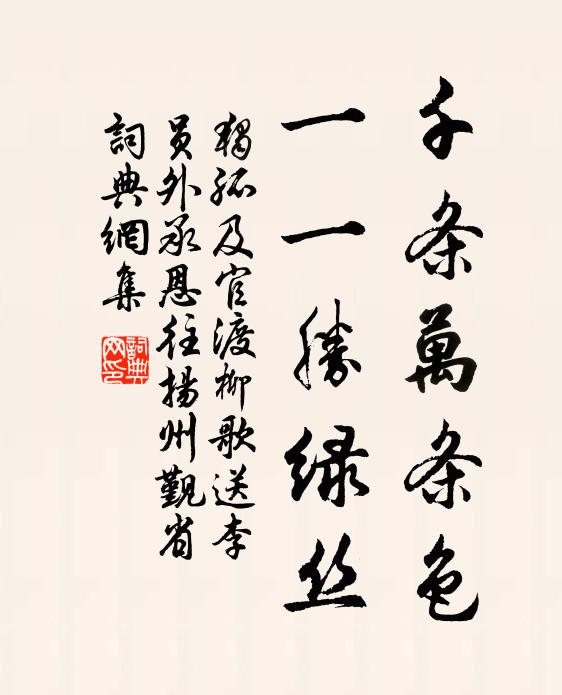 千条萬条色
一一勝緑丝
獨孤及官渡柳歌送李
員外承恩往揚州觐省
詞典網集
詞典
网印